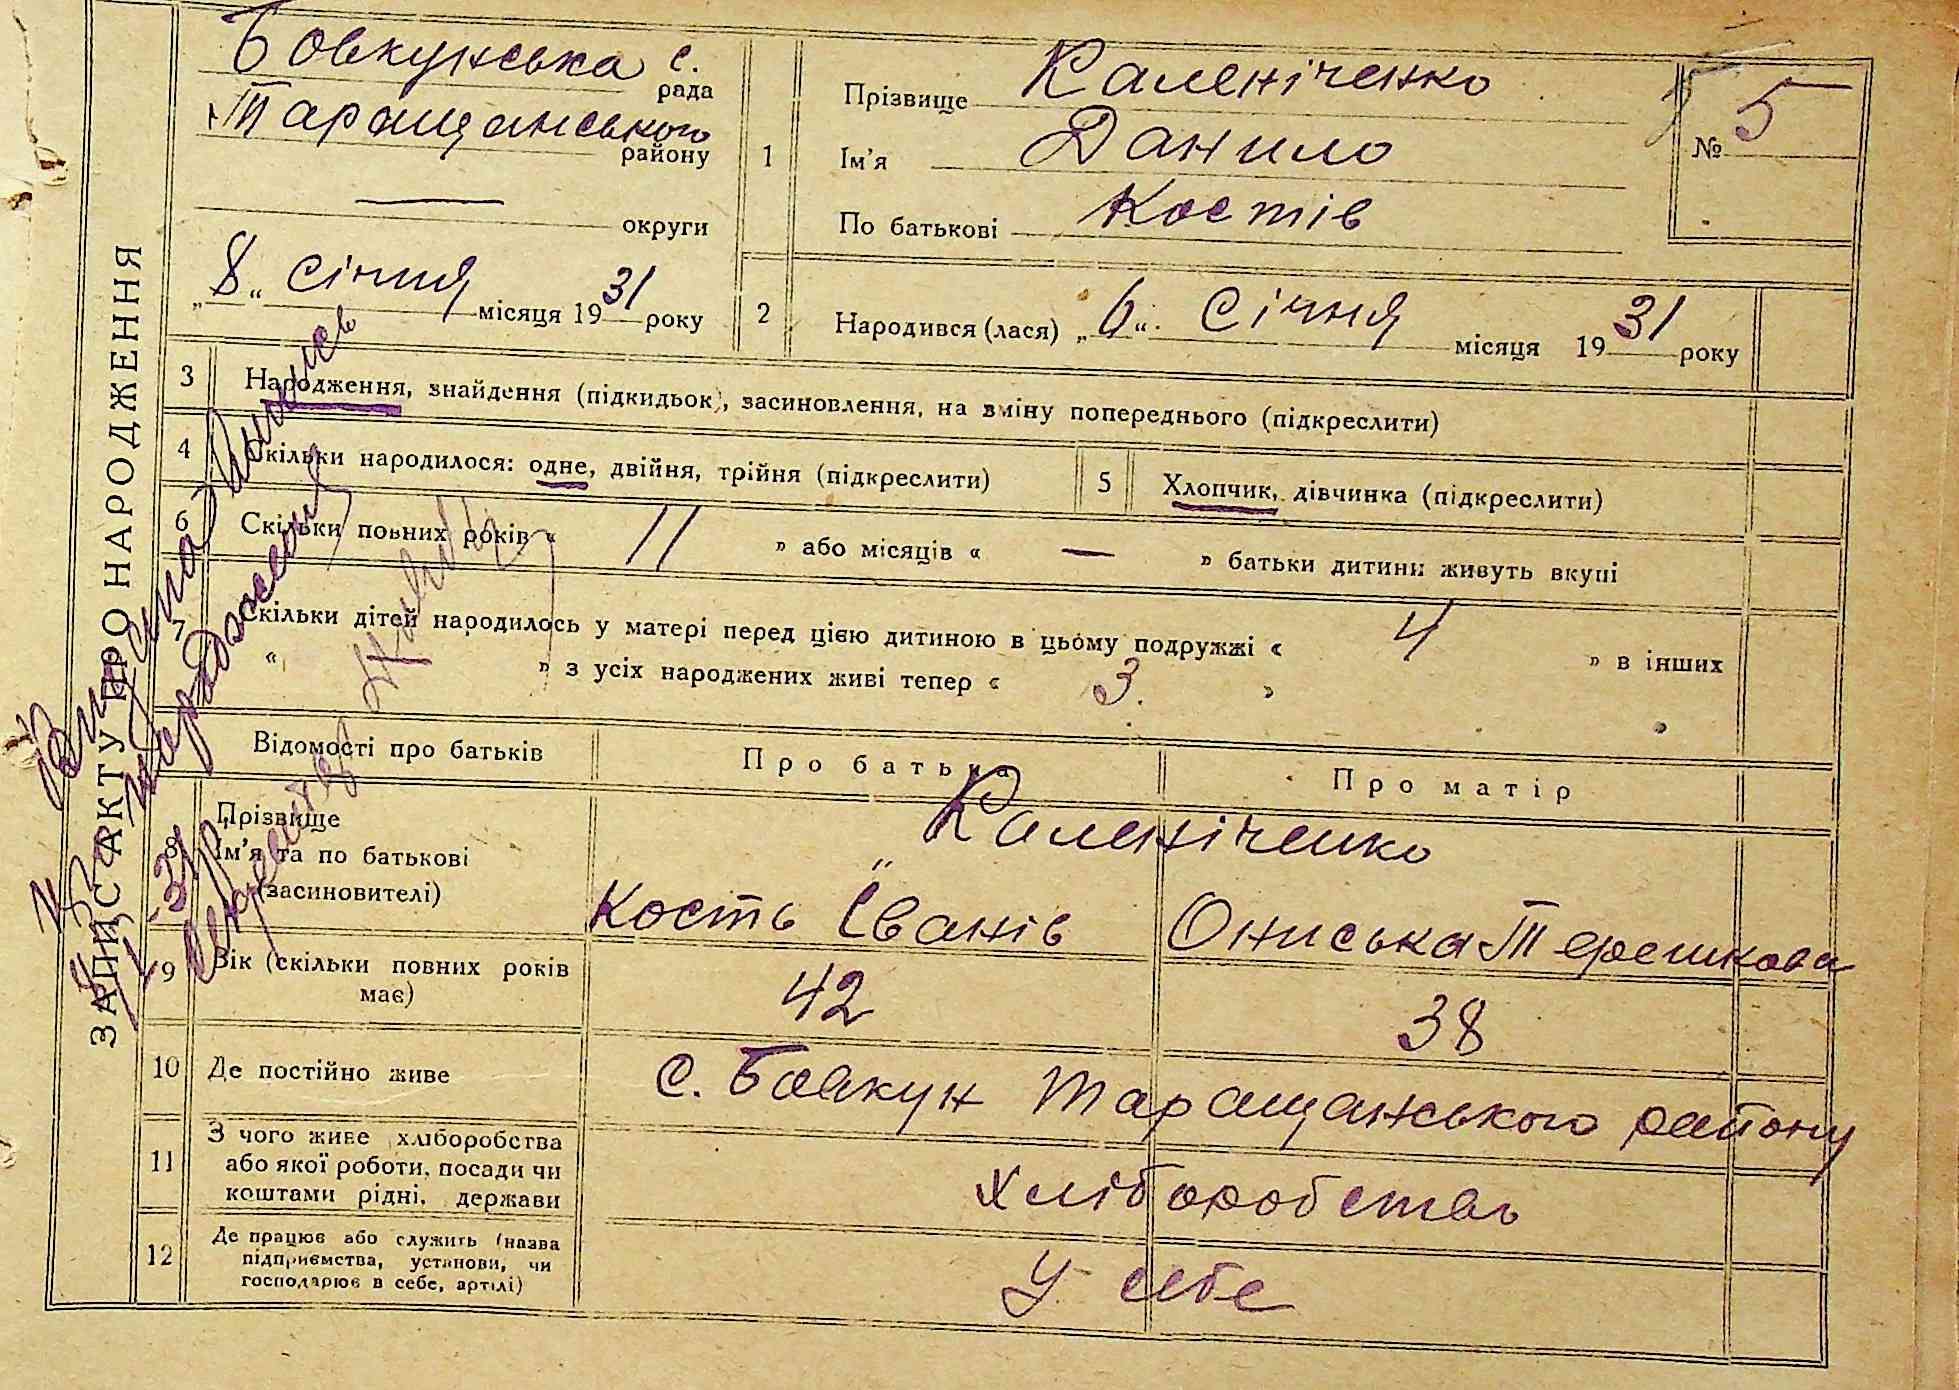 ЗАПИС АКТУ ПРО НАРОДЖЕННЯ
Бовкунська с.
рада
Таращанського
району
— округи
„8“ січня місяця 1931 року
1
Прізвище Каленіченко
Ім'я Данило
По батькові Костів
№ 5
2 Народився (лася) „6“ Січня місяця 1931 року
3 Народження, знайдення (підкидьок), засиновлення, на зміну попереднього (підкреслити)
4 Скільки народилося: одне, двійня, трійня (підкреслити)
5 Хлопчик, дівчинка (підкреслити)
6 Скільки повних років « 11 » або місяців « — » батьки дитини живуть вкупі
7 Скільки дітей народилось у матері перед цією дитиною в цьому подружжі « 4 » в інших
« » з усіх народжених живі тепер « 3 »
Відомості про батьків
Про батька
Про матір
8 Прізвище
Ім'я та по батькові
(засиновителі)
Каленіченко
Кость Іванів
Ониська Терешкова
9 Вік (скільки повних років має)
42
38
10 Де постійно живе
с. Бовкун Таращанського району
11 З чого живе хліборобства
або якої роботи, посади чи
коштами рідні, держави
Хліборобства
12 Де працює або служить (назва
підприємства, установи, чи
господарює в себе, артілі)
У себе